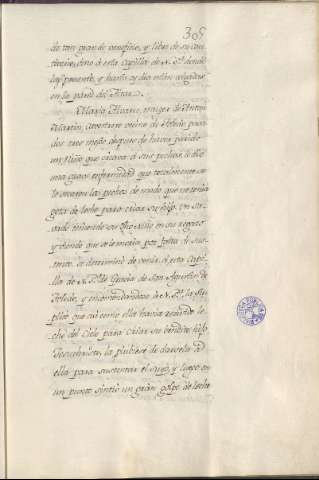 305
de tan grande benefiçio, y libre de su con
vino a esta capilla de N. Sª donde
las presento, y hasta oy dia estan colgadas
en la pared del Altar.
Maria Alvarez, muger de Anton
Martin, carretero vecino de Toledo, pasa
dos tres meses despues de haver parido
un Niño que criava a sus pechos, le dio
una gran enfermedad que totalmente se
le secaron los pechos de modo que no tenia
gota de leche para criar su hijo. Un
teniendole su Niño en sus regazos
y viendo que se le moria por falta de sus
tento. Se determinó de venir a esta Capi
lla de N. Sª de Gracia de San Agustin de
Toledo, y encomendandose a N. Sª la su
plicó que asi como ella havia tenido le
che del Cielo para criar su bendito hijo
Jesuchristo, la pidiese de darsela a
ella para sustentar el suyo, y luego en
un punto sintió un gran golpe de leche